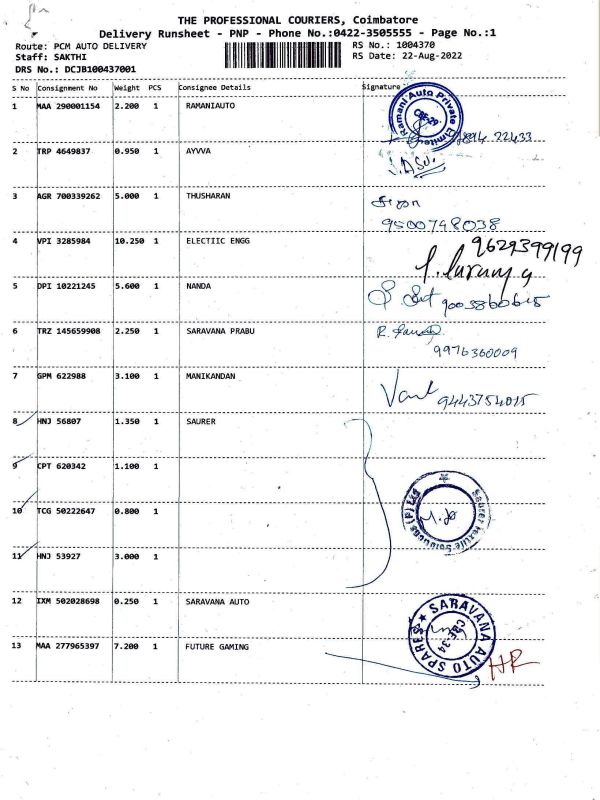 THE PROFESSIONAL COURIERS, Coimbatore
Delivery Runsheet - PNP - Phone No.:0422-3505555 - Page No.:1
Route: PCM AUTO DELIVERY RS No.: 1004370
Staff: SAKTHI RS Date: 22-Aug-2022
DRS No.: DCJB100437001
S No Consignment No Weight PCS Consignee Details Signature
1 MAA 290001154 2.200 1 RAMANIAUTO
Ramani Auto Private Limited
22433
2 TRP 4649837 0.950 1 AYVVA
3 AGR 700339262 5.000 1 THUSHARAN
9500748038
4 VPI 3285984 10.250 1 ELECTIIC ENGG 9629399199
5 DPI 10221245 5.600 1 NANDA
9003860645
6 TRZ 145659908 2.250 1 SARAVANA PRABU
9976360009
7 GPM 622988 3.100 1 MANIKANDAN
9443754015
8 HNJ 56807 1.350 1 SAURER
9 CPT 620342 1.100 1
Saurer Textile Solutions (P) Ltd
10 TCG 50222647 0.800 1
11 HNJ 53927 3.000 1
12 IXM 502028698 0.250 1 SARAVANA AUTO
SARAVANA AUTO SPARES
CBE-34
13 MAA 277965397 7.200 1 FUTURE GAMING
HR